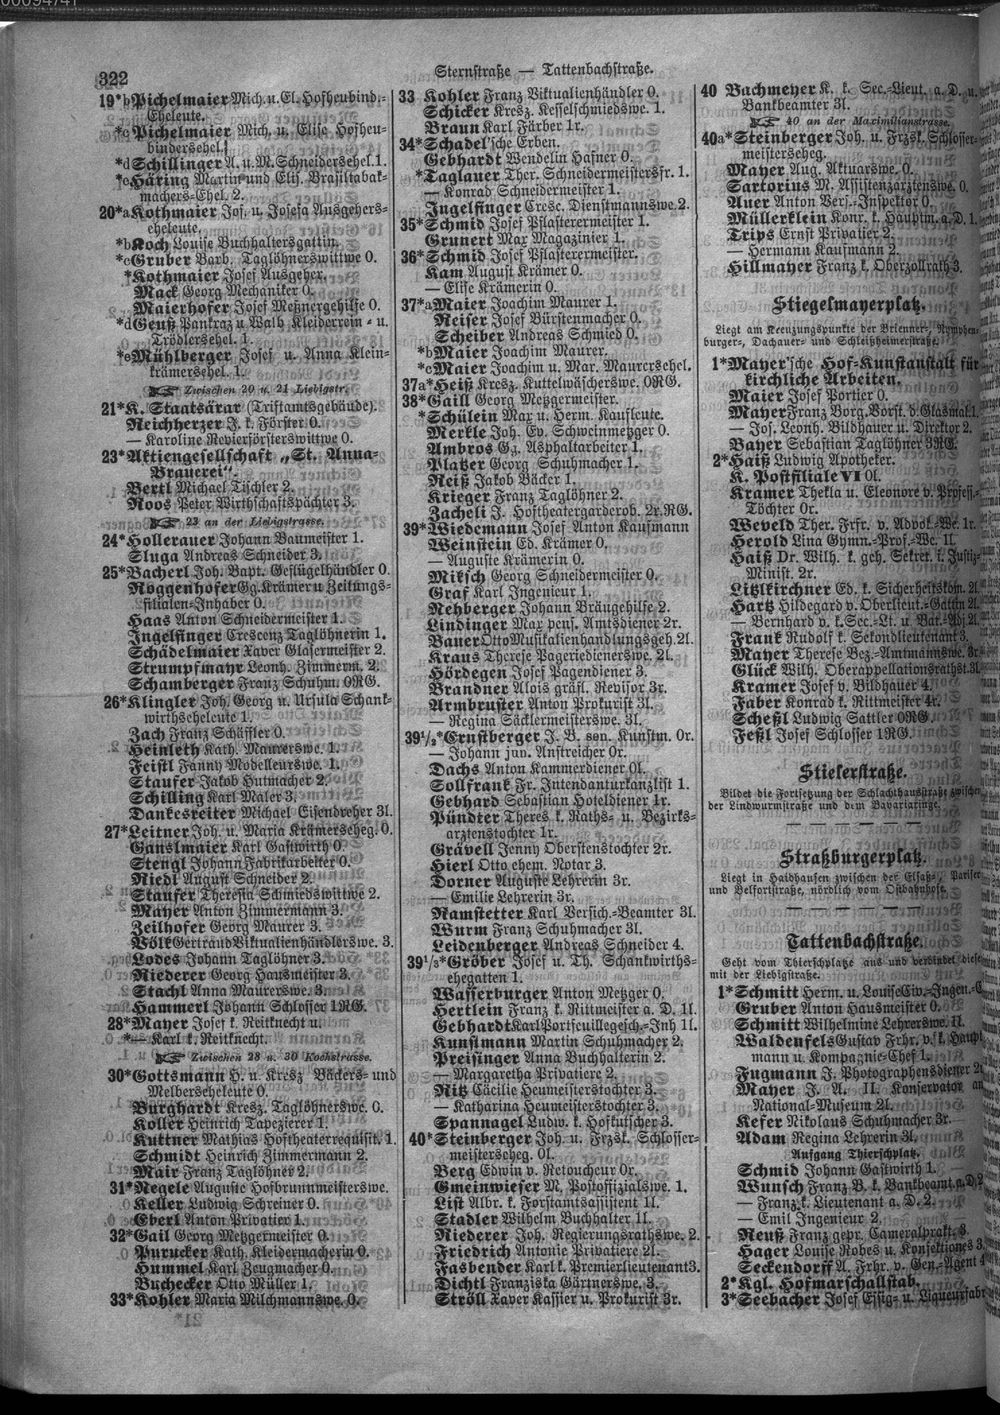 322
Sternstraße — Tattenbachstraße.
19*b Pichelmaier Mich. u. El. Hofheubind.-
Eheleute.
*c Pichelmaier Mich. u. Elise Hofheu-
bindersehel.
*d Schillinger A. u. M. Schneidersehel. 1.
*e Häring Martin und Elis. Brasiltabak-
machers-Ehel. 2.
20*a Kothmaier Jos. u. Josefa Ausgehers-
eheleute.
*b Koch Louise Buchhaltersgattin.
*c Gruber Barb. Taglöhnerswittwe 0.
*Kothmaier Josef Ausgeher.
Mack Georg Mechaniker 0.
Maierhofer Josef Meßnergehilfe 0.
*d Geuß Pankraz u. Walb. Kleiderrein.- u.
Trödlersehel. 1.
*e Mühlberger Josef u. Anna Klein-
krämersehel. 1.
Zwischen 20 u. 21 Liebigstr.
21*K. Staatsärar (Triftamtsgebäude).
Reichherzer J. k. Förster 0.
— Karoline Revierförsterswittwe 0.
23*Aktiengesellschaft „St. Anna-
Brauerei“.
Bertl Michael Tischler 2.
Roos Peter Wirthschaftspächter 3.
23 an der Liebigstrasse.
24*Hollerauer Johann Baumeister 1.
Sluga Andreas Schneider 3.
25*Bacherl Joh. Bapt. Geflügelhändler 0.
Roggenhofer Gg. Krämer u. Zeitungs-
filialen-Inhaber 0.
Haas Anton Schneidermeister 1.
Ingelfinger Crescenz Taglöhnerin 1.
Schädelmaier Xaver Glasermeister 2.
Strumpfmayr Leonh. Zimmerm. 2.
Schamberger Franz Schuhm. 0RG.
26*Klingler Joh. Georg u. Ursula Schank-
wirthseheleute 1.
Zach Franz Schäffler 0.
Heinleth Kath. Maurerswe. 1.
Feistl Fanny Modelleurswe. 1.
Staufer Jakob Hutmacher 2.
Schilling Karl Maler 3.
Dankesreiter Michael Eisendreher 3l.
27*Leitner Joh. u. Maria Krämerseheg. 0.
Ganslmaier Karl Gastwirth 0.
Stengl Johann Fabrikarbeiter 0.
Riedl August Schneider 2.
Staufer Theresia Schmiedswittwe 2.
Mayer Anton Zimmermann 3.
Zeilhofer Georg Maurer 3.
Völk Gertraud Viktualienhändlerswe. 3.
Lodes Johann Taglöhner 3.
Riederer Georg Hausmeister 3.
Stachl Anna Maurerswe. 3.
Hammerl Johann Schlosser 1RG.
28*Mayer Josef k. Reitknecht u.
*— Karl k. Reitknecht.
Zwischen 28 u. 30 Kochstrasse.
30*Gottsmann H. u. Kresz. Bäckers- und
Melberseheleute 0.
Burghardt Kresz. Taglöhnerswe. 0.
Koller Heinrich Tapezierer 1.
Kuttner Mathias Hoftheaterrequisit. 1.
Schmidt Heinrich Zimmermann 2.
Mair Franz Taglöhner 2.
31*Regele Auguste Hofbrunnmeisterswe.
Keller Ludwig Schreiner 0.
Eberl Anton Privatier 1.
32*Gail Georg Metzgermeister 0.
Purucker Kath. Kleidermacherin 0.
Hummel Karl Zeugmacher 0.
Buchecker Otto Müller 1.
33*Kohler Maria Milchmannswe. 0.
33 Kohler Franz Viktualienhändler 0.
Schicker Kresz. Kesselschmiedswe. 1.
Braun Karl Färber 1r.
34*Schadel'sche Erben.
Gebhardt Wendelin Hafner 0.
*Taglauer Ther. Schneidermeistersfr. 1.
— Konrad Schneidermeister 1.
Ingelfinger Cresc. Dienstmannswe. 2.
35*Schmid Josef Pflasterermeister 1.
Grunert Max Magazinier 1.
36*Schmid Josef Pflasterermeister.
Kam August Krämer 0.
— Elise Krämerin 0.
37*a Maier Joachim Maurer 1.
Reiser Josef Bürstenmacher 0.
Scheiber Andreas Schmied 0.
*b Maier Joachim Maurer.
*c Maier Joachim u. Mar. Maurersehel.
37a*Heiß Kresz. Kuttelwäscherswe. 0RG.
38*Gaill Georg Metzgermeister.
*Schülein Max u. Herm. Kaufleute.
Merkle Joh. Ev. Schweinmetzger 0.
Ambros Gg. Asphaltarbeiter 1.
Platzer Georg Schuhmacher 1.
Reiß Jakob Bäcker 1.
Krieger Franz Taglöhner 2.
Zacheli J. Hoftheatergarderob. 2r.RG.
39*Wiedemann Josef Anton Kaufmann
Weinstein Ed. Krämer 0.
— Auguste Krämerin 0.
Miksch Georg Schneidermeister 0.
Graf Karl Ingenieur 1.
Rehberger Johann Bräugehilfe 2.
Lindinger Max pens. Amtsdiener 2r.
Bauer Otto Musikalienhandlungsgeh. 2l.
Kraus Therese Pageriedienerswe. 2l.
Hördegen Josef Pagendiener 3.
Brandner Alois gräfl. Revisor 3r.
Armbruster Anton Prokurist 3l.
— Regina Säcklermeisterswe. 3l.
39½*Ernstberger J. B. sen. Kunstm. 0r.
— Johann jun. Anstreicher 0r.
Dachs Anton Kammerdiener 0l.
Sollfrank Fr. Intendanturkanzlist 1.
Gebhard Sebastian Hoteldiener 1r.
Pündter Theres k. Raths- u. Bezirks-
arztenstochter 1r.
Grävell Jenny Oberstenstochter 2r.
Hierl Otto ehem. Notar 3.
Dorner Auguste Lehrerin 3r.
— Emilie Lehrerin 3r.
Ramstetter Karl Versich.-Beamter 3l.
Wurm Franz Schuhmacher 3l.
Leidenberger Andreas Schneider 4.
39⅓*Gröber Josef u. Th. Schankwirths-
ehegatten 1.
Wasserburger Anton Metzger 0.
Hertlein Franz k. Rittmeister a. D. 1l.
Gebhardt Karl Portfeuillegesch.-Inh 1l.
Kunstmann Martin Schuhmacher 2.
Preisinger Anna Buchhalterin 2.
— Margaretha Privatiere 2.
Ritz Cäcilie Heumeisterstochter 3.
— Katharina Heumeisterstochter 3.
Spannagel Ludw. k. Hofkutscher 3.
40*Steinberger Joh. u. Frzsk. Schlosser-
meisterseheg. 0l.
Berg Edwin v. Retoucheur 0r.
Gmeinwieser M. Postoffizialswe. 1.
List Albr. k. Forstamtsassistent 1l.
Stadler Wilhelm Buchhalter 1l.
Riederer Joh. Regierungsrathswe. 2.
Friedrich Antonie Privatiere 2l.
Fasbender Karl k. Premierlieutenant 3.
Dichtl Franziska Gärtnerswe. 3.
Ströll Xaver Kassier u. Prokurist 3r.
40 Bachmeyer K. k. Sec.-Lieut. a. D. u.
Bankbeamter 3l.
40 an der Maximilianstrasse.
40a*Steinberger Joh. u. Frzsk. Schlosser-
meisterseheg.
Mayer Aug. Aktuarswe. 0.
Sartorius M. Assistenzarztenswe. 0.
Auer Anton Vers.-Inspektor 0.
Müllerklein Konr. k. Hauptm. a. D. 1.
Trips Ernst Privatier 2.
— Hermann Kaufmann 2.
Hillmayer Franz k. Oberzollrath 3.
Stiegelmayerplatz.
Liegt am Kreuzungspunkte der Brienner-, Nymphen-
burger-, Dachauer- und Schleißheimerstraße.
1*Mayer'sche Hof-Kunstanstalt für
kirchliche Arbeiten.
Maier Josef Portier 0.
Mayer Franz Borg. Vorst. d. Glasmal. 1.
— Jos. Leonh. Bildhauer u. Direktor 2.
Bayer Sebastian Taglöhner 3RG.
2*Haiß Ludwig Apotheker.
K. Postfiliale VI 0l.
Kramer Thekla u. Eleonore v. Profess.-
Töchter 0r.
Weveld Ther. Frfr. v. Advok.-We. 1r.
Herold Lina Gymn.-Prof.-We. 1l.
Haiß Dr. Wilh. k. geh. Sekret. i. Justiz-
Minist. 2r.
Litzlkirchner Ed. k. Sicherheitskom. 2l.
Hartz Hildegard v. Oberlieut.-Gattin 2l.
— Bernhard v. k. Sec.-Lt. u. Bat.-Adj. 2l.
Frank Rudolf k. Sekondlieutenant 3.
Mayer Therese Bez.-Amtmannswe. 3r.
Glück Wilh. Oberappellationsrathst. 3l.
Kramer Josef v. Bildhauer 4.
Faber Konrad k. Rittmeister 4r.
Scheßl Ludwig Sattler 0RG.
Feßl Josef Schlosser 1RG.
Stielerstraße.
Bildet die Fortsetzung der Schlachthausstraße zwischen
der Lindwurmstraße und dem Bavariaringe.
Straßburgerplatz.
Liegt in Haidhausen zwischen der Elsaß-, Pariser-
und Belfortstraße, nördlich vom Ostbahnhofe.
Tattenbachstraße.
Geht vom Thierschplatze aus und verbindet diesen
mit der Liebigstraße.
1*Schmitt Herm. u. Louise Civ.-Ingen.-
Gruber Anton Hausmeister 0.
Schmitt Wilhelmine Lehrerswe. 1l.
Waldenfels Gustav Frhr. v. k. Haupt-
mann u. Kompagnie-Chef 1.
Fugmann J. Photographensdiener 2l.
Mayer J. A. II. Konservator am
National-Museum 2l.
Kefer Nikolaus Schuhmacher 3r.
Adam Regina Lehrerin 3l.
Aufgang Thierschplatz.
Schmid Johann Gastwirth 1.
Wunsch Franz B. k. Bankbeamt. a. D. 2
— Franz k. Lieutenant a. D. 2.
— Emil Ingenieur 2.
Reuß Franz gepr. Cameralprakt. 3.
Hager Louise Robes u. Konfektiones 3.
Seckendorff A. Frhr. v. Gen.-Agent 4
2*Kgl. Hofmarschallstab.
3*Seebacher Josef Essig- u. Liqueurfabr
21*